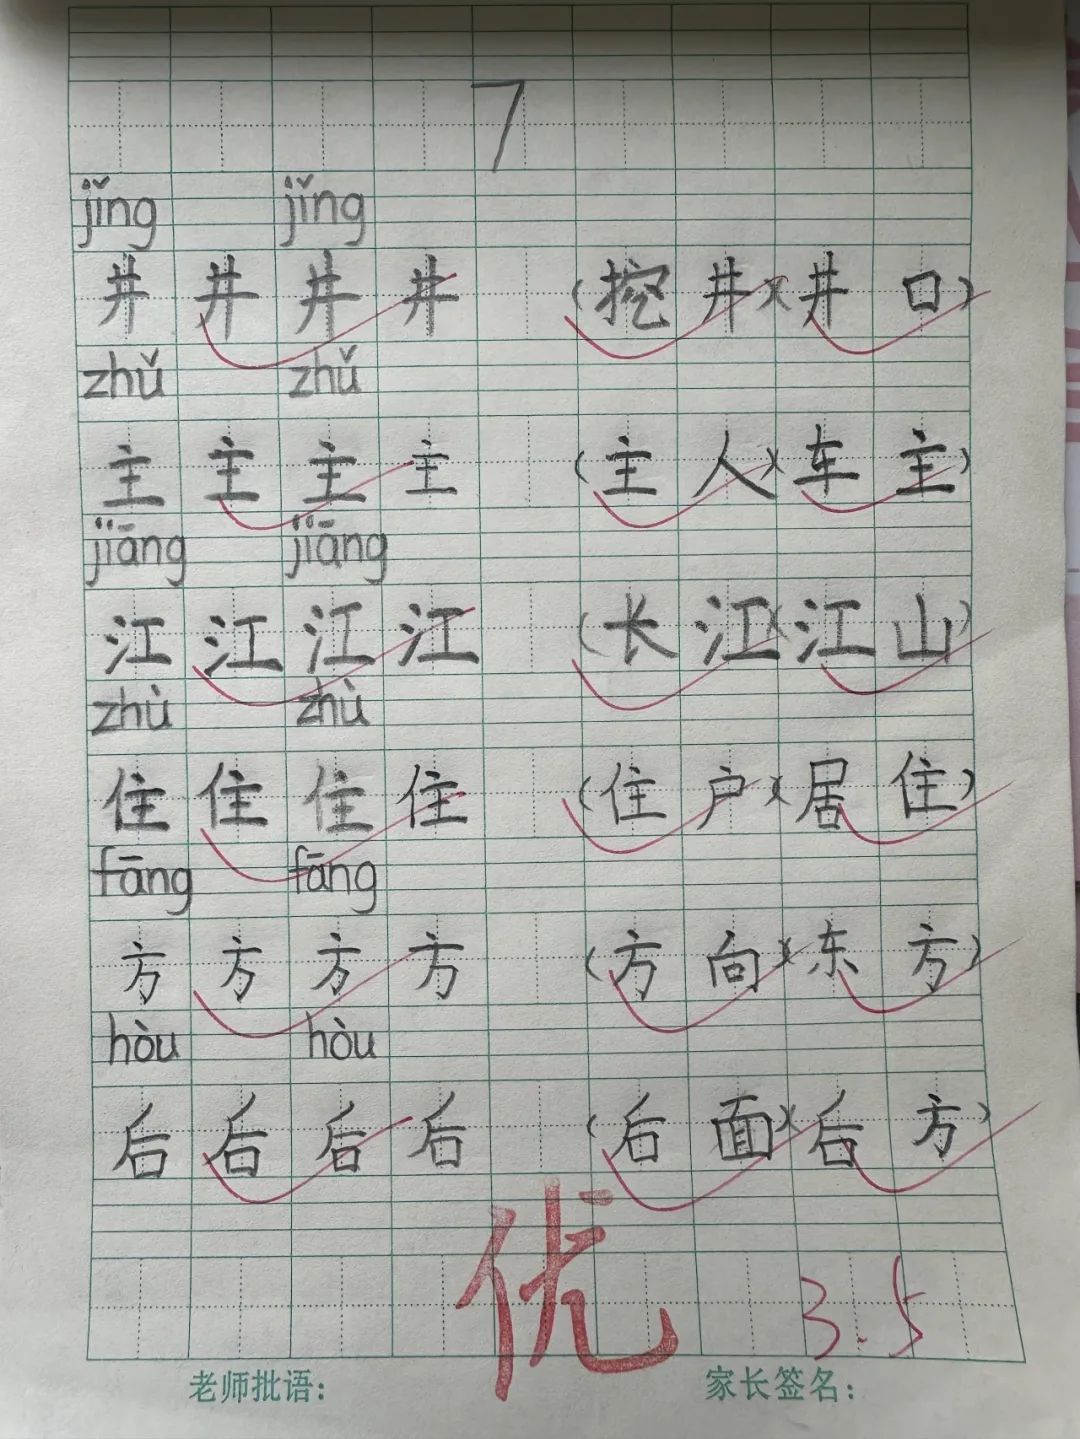 7
jǐng jǐng
井 井 井 井 (挖井)(井口)
zhǔ zhǔ
主 主 主 主 (主人)(车主)
jiāng jiāng
江 江 江 江 (长江)(江山)
zhù zhù
住 住 住 住 (住户)(居住)
fāng fāng
方 方 方 方 (方向)(东方)
hòu hòu
后 后 后 后 (后面)(后方)
优
3.5
老师批语： 家长签名：